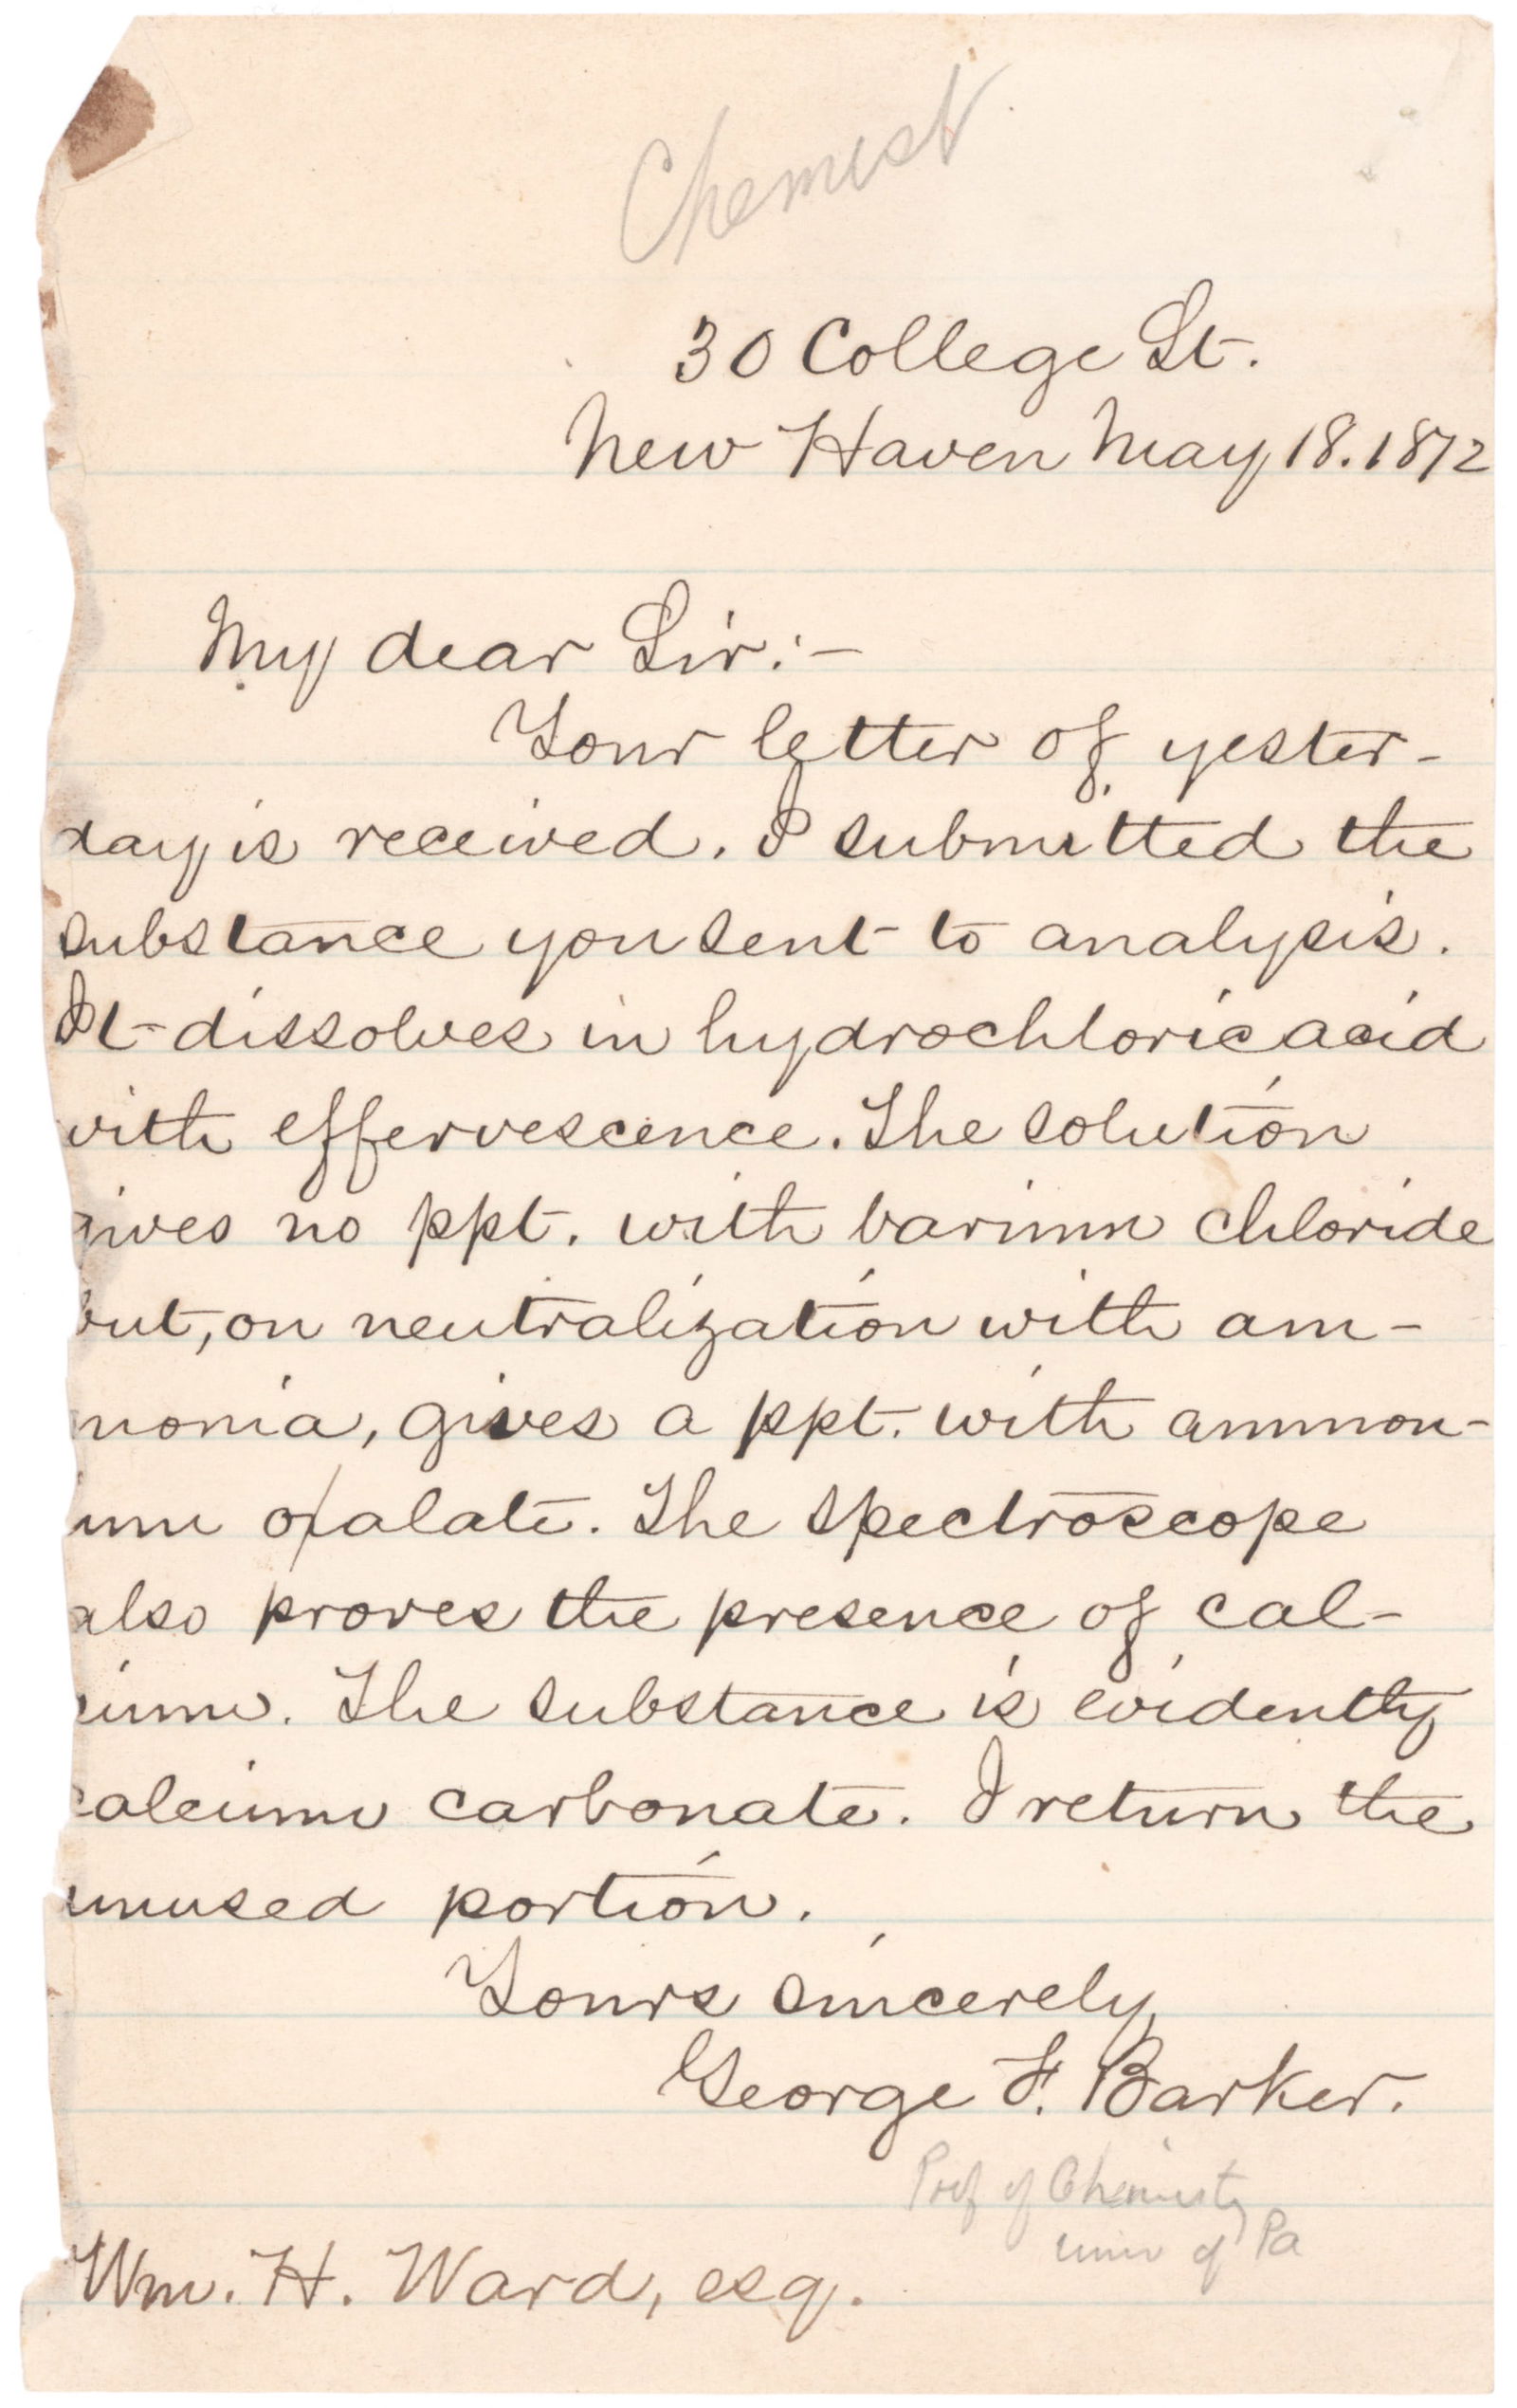 Chemist
30 College St.
New Haven May 18. 1872
My dear Sir:-
Your letter of yester-
day is received. I submitted the
substance you sent to analysis.
It dissolves in hydrochloric acid
with effervescence. The solution
gives no ppt. with barium chloride
but, on neutralization with am-
monia, gives a ppt. with ammon-
ium oxalate. The spectroscope
also proves the presence of cal-
cium. The substance is evidently
calcium carbonate. I return the
unused portion.
Yours sincerely,
George F. Barker.
Prof of Chemistry
Univ of Pa
Wm. H. Ward, esq.